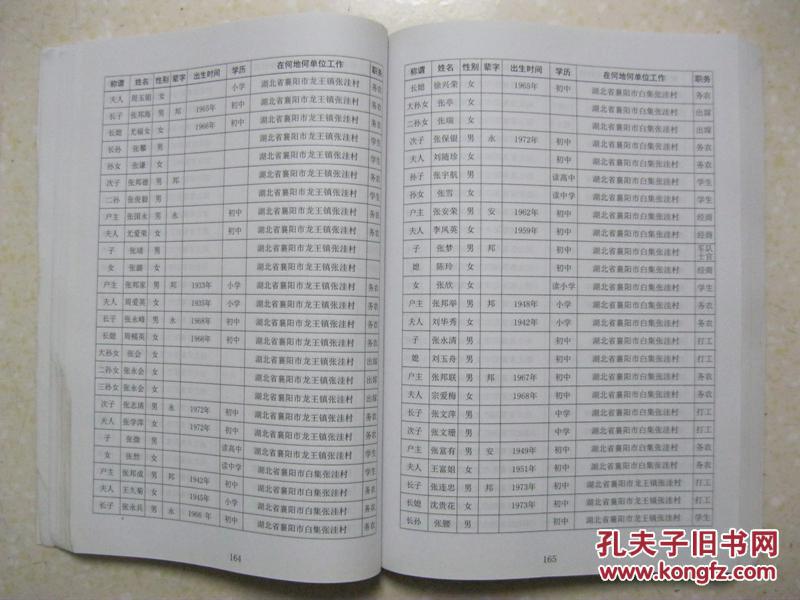 称谓 姓名 性别 辈字 出生时间 学历 在何地何单位工作 职务
夫人 周玉娟 女 小学 湖北省襄阳市龙王镇张洼村 务农
长子 张邦海 男 邦 1965年 初中 湖北省襄阳市龙王镇张洼村 务农
长媳 尤福女 女 1966年 初中 湖北省襄阳市龙王镇张洼村 务农
长孙 张攀 男 湖北省襄阳市龙王镇张洼村 学生
孙女 张谦 女 湖北省襄阳市龙王镇张洼村 学生
次子 张邦德 男 邦 湖北省襄阳市龙王镇张洼村 务农
二孙 张俊毅 男 湖北省襄阳市龙王镇张洼村 学生
户主 张国永 男 永 初中 湖北省襄阳市龙王镇张洼村 务农
夫人 尤爱荣 女 初中 湖北省襄阳市龙王镇张洼村 务农
子 张靖 男 湖北省襄阳市龙王镇张洼村
女 张璐 女 湖北省襄阳市龙王镇张洼村
户主 张邦家 男 邦 1933年 小学 湖北省襄阳市龙王镇张洼村 务农
夫人 周爱英 女 1935年 小学 湖北省襄阳市龙王镇张洼村 务农
长子 张永峰 男 永 1968年 初中 湖北省襄阳市龙王镇张洼村 务农
长媳 周橘英 女 1966年 初中 湖北省襄阳市龙王镇张洼村 务农
大孙女 张会 女 湖北省襄阳市龙王镇张洼村 出嫁
二孙女 张永会 女 湖北省襄阳市龙王镇张洼村 出嫁
三孙女 张永会 女 湖北省襄阳市龙王镇张洼村 出嫁
次子 张志勇 男 永 1972年 初中 湖北省襄阳市龙王镇张洼村 务农
夫人 张学萍 女 1972年 初中 湖北省襄阳市龙王镇张洼村 务农
子 张 男 读高中 湖北省襄阳市龙王镇张洼村 学生
女 张 女 读中学 湖北省襄阳市白集张洼村 学生
户主 张邦成 男 邦 1942年 初中 湖北省襄阳市白集张洼村 务农
夫人 王久菊 女 1945年 小学 湖北省襄阳市白集张洼村 务农
长子 张永兵 男 永 1966年 初中 湖北省襄阳市白集张洼村 务农
164
称谓 姓名 性别 辈字 出生时间 学历 在何地何单位工作 职务
长媳 徐兴荣 女 1965年 初中 湖北省襄阳市白集张洼村 务农
大孙女 张亭 女 湖北省襄阳市白集张洼村 出嫁
二孙女 张瑞 女 湖北省襄阳市白集张洼村 出嫁
次子 张保银 男 永 1972年 初中 湖北省襄阳市白集张洼村 务农
夫人 刘随珍 女 初中 湖北省襄阳市白集张洼村 务农
孙子 张宇航 男 读高中 湖北省襄阳市白集张洼村 学生
孙女 张雪 女 读中学 湖北省襄阳市白集张洼村 学生
户主 张安荣 男 安 1962年 初中 湖北省襄阳市白集张洼村 经商
夫人 李风英 女 1959年 初中 湖北省襄阳市白集张洼村 经商
子 张梦 男 邦 初中 湖北省襄阳市白集张洼村 军队士官
媳 陈玲 女 初中 湖北省襄阳市白集张洼村 经商
女 张欣 女 读小学 湖北省襄阳市白集张洼村 学生
户主 张邦举 男 邦 1948年 小学 湖北省襄阳市白集张洼村 务农
夫人 刘华秀 女 1942年 小学 湖北省襄阳市白集张洼村 务农
子 张永清 男 初中 湖北省襄阳市白集张洼村 打工
媳 刘玉舟 男 初中 湖北省襄阳市白集张洼村 打工
户主 张邦联 男 邦 1967年 初中 湖北省襄阳市白集张洼村 务农
夫人 宗爱梅 女 1968年 初中 湖北省襄阳市白集张洼村 务农
长子 张文萍 男 中学 湖北省襄阳市白集张洼村 打工
次子 张文珊 男 中学 湖北省襄阳市白集张洼村 务农
户主 张富有 男 安 1949年 初中 湖北省襄阳市白集张洼村 务农
夫人 王富娟 女 1951年 初中 湖北省襄阳市白集张洼村 务农
长子 张连忠 男 邦 1973年 初中 湖北省襄阳市龙王张洼村 打工
长媳 沈贵花 女 1973年 初中 湖北省襄阳市龙王张洼村 打工
长孙 张腰 男 初中 湖北省襄阳市龙王张洼村 学生
165
孔夫子旧书网
www.kongfz.com